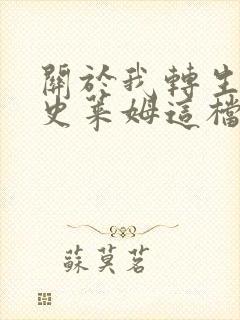 關於我轉生
史萊姆這檔
蘇莫茗